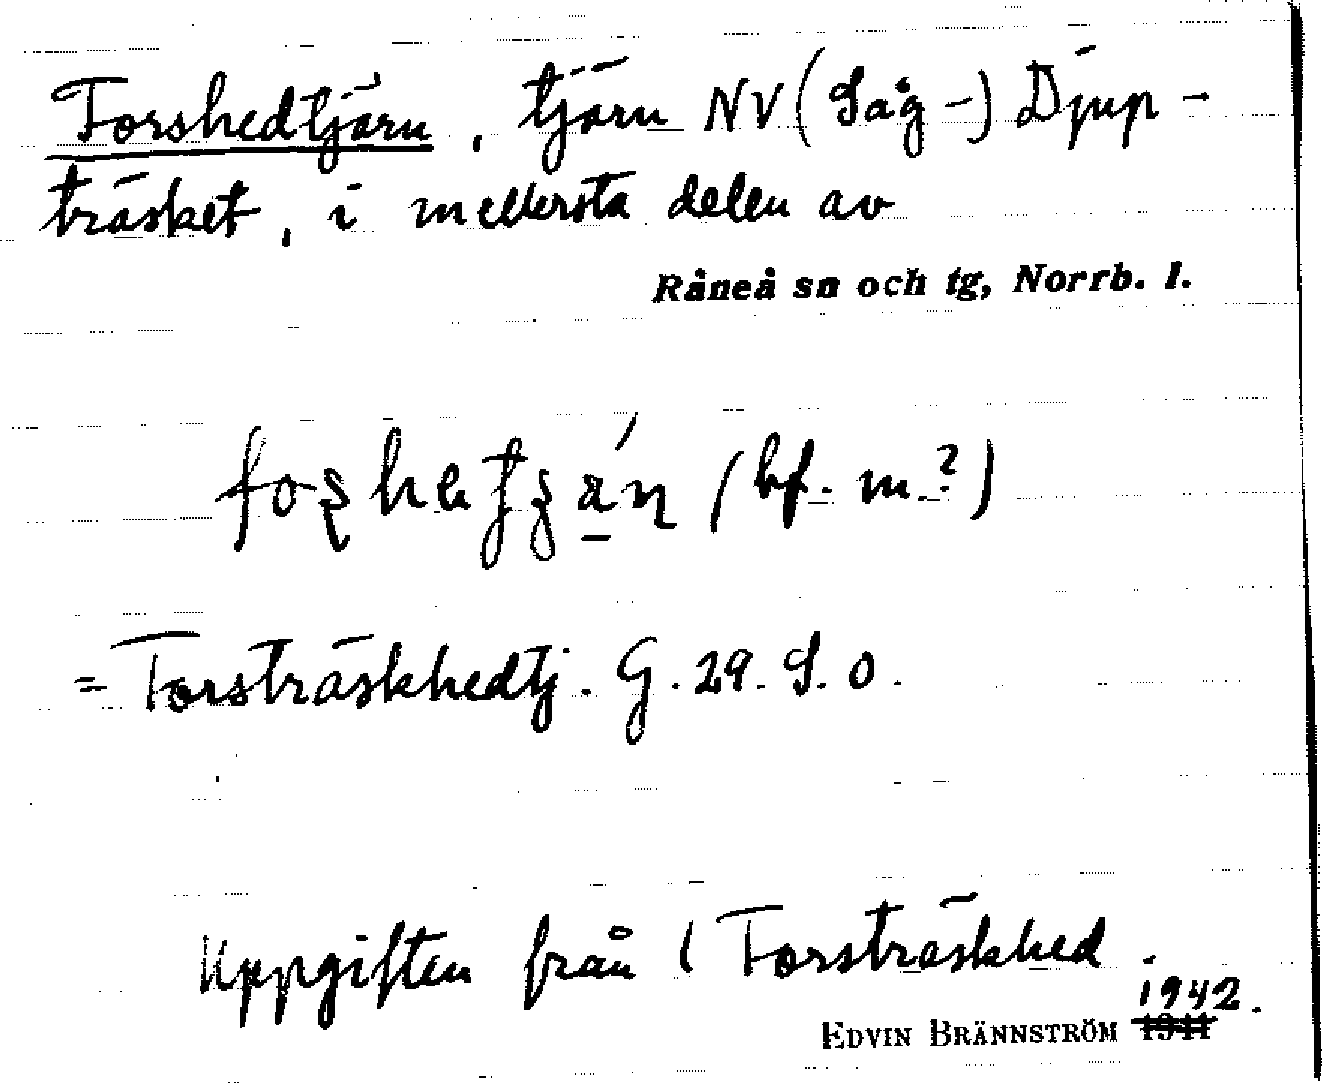 Forshedtjärn, tjärn NV (Såg-) Djup-
träsket, i mellersta delen av
Råneå sn och tg, Norrb. l.
(bf. m.?)
= Forsträskhedtj. G. 29. S. O.
Uppgiften från Forsträskhed.
1942.
EDVIN BRÄNNSTRÖM 1941